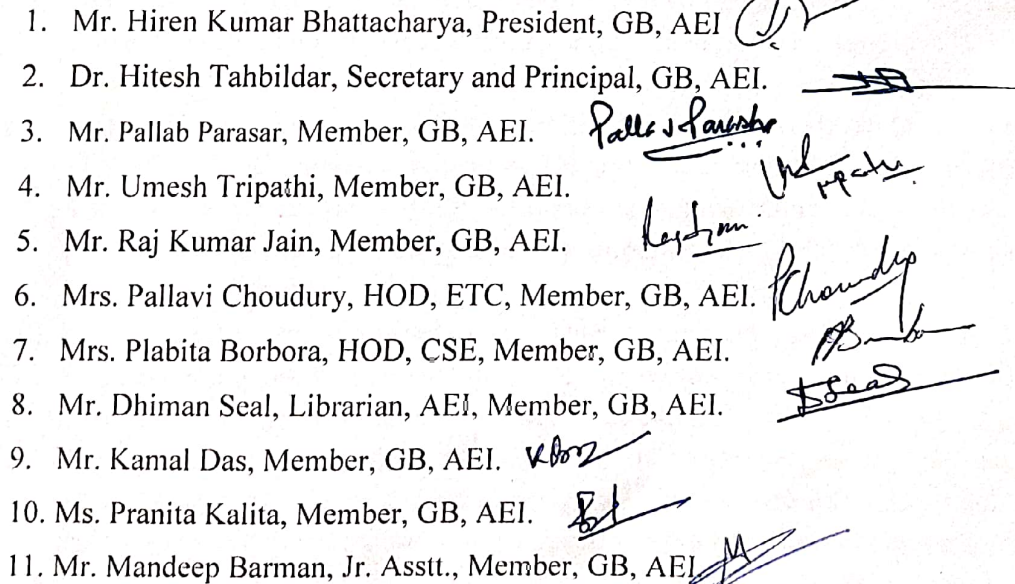 1. Mr. Hiren Kumar Bhattacharya, President, GB, AEI
2. Dr. Hitesh Tahbildar, Secretary and Principal, GB, AEI.
3. Mr. Pallab Parasar, Member, GB, AEI. Pallav Parashar
4. Mr. Umesh Tripathi, Member, GB, AEI.
5. Mr. Raj Kumar Jain, Member, GB, AEI.
6. Mrs. Pallavi Choudury, HOD, ETC, Member, GB, AEI. PChoudury
7. Mrs. Plabita Borbora, HOD, CSE, Member, GB, AEI.
8. Mr. Dhiman Seal, Librarian, AEI, Member, GB, AEI. DSeal
9. Mr. Kamal Das, Member, GB, AEI. KDas
10. Ms. Pranita Kalita, Member, GB, AEI.
11. Mr. Mandeep Barman, Jr. Asstt., Member, GB, AEI